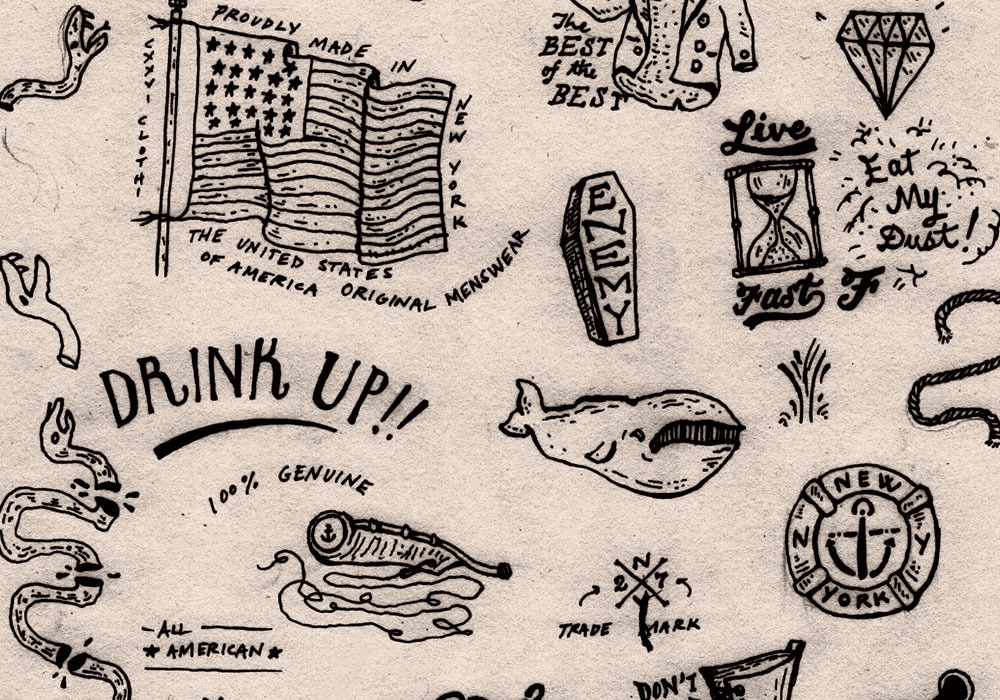 PROUDLY MADE IN
NEW YORK
CXXVI CLOTHI
THE UNITED STATES
OF AMERICA ORIGINAL MENSWEAR
The
BEST
of the
BEST
Live
Fast F
Eat
My
Dust!
ENEMY
DRINK UP!!
100% GENUINE
NEW
YORK
N Y
N
2 7
TRADE MARK
ALL
★ AMERICAN ★
DON'T